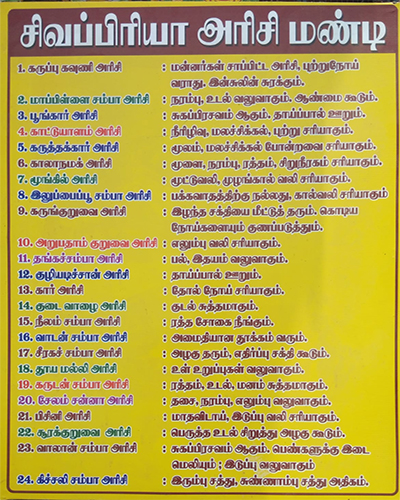 சிவப்பிரியா அரிசி மண்டி
1. கருப்பு கவுணி அரிசி : மன்னர்கள் சாப்பிட்ட அரிசி, புற்றுநோய்
வராது. இன்சுலின் சுரக்கும்.
2. மாப்பிள்ளை சம்பா அரிசி : நரம்பு, உடல் வலுவாகும், ஆண்மை கூடும்.
3. பூங்கார் அரிசி : சுகப்பிரசவம் ஆகும், தாய்ப்பால் ஊறும்.
4. காட்டுயாளம் அரிசி : நீரிழிவு, மலச்சிக்கல், புற்று சரியாகும்.
5. கருத்தக்கார் அரிசி : மூலம், மலச்சிக்கல் போன்றவை சரியாகும்.
6. காலாநமக் அரிசி : மூளை, நரம்பு, ரத்தம், சிறுநீரகம் சரியாகும்.
7. மூங்கில் அரிசி : மூட்டுவலி, முழங்கால் வலி சரியாகும்.
8. இலுப்பைப்பூ சம்பா அரிசி : பக்கவாதத்திற்கு நல்லது, கால்வலி சரியாகும்
9. கருங்குறுவை அரிசி : இழந்த சக்தியை மீட்டுத் தரும். கொடிய
நோய்களையும் குணப்படுத்தும்.
10. அறுபதாம் குறுவை அரிசி : எலும்பு வலி சரியாகும்.
11. தங்கச்சம்பா அரிசி : பல், இதயம் வலுவாகும்.
12. குழியடிச்சான் அரிசி : தாய்ப்பால் ஊறும்.
13. கார் அரிசி : தோல் நோய் சரியாகும்.
14. குடை வாழை அரிசி : குடல் சுத்தமாகும்.
15. நீலம் சம்பா அரிசி : ரத்த சோகை நீங்கும்.
16. வாடன் சம்பா அரிசி : அமைதியான தூக்கம் வரும்.
17. சீரகச் சம்பா அரிசி : அழகு தரும், எதிர்ப்பு சக்தி கூடும்.
18. தூய மல்லி அரிசி : உள் உறுப்புகள் வலுவாகும்.
19. கருடன் சம்பா அரிசி : ரத்தம், உடல், மனம் சுத்தமாகும்.
20. சேலம் சன்னா அரிசி : தசை, நரம்பு, எலும்பு வலுவாகும்.
21. பிசினி அரிசி : மாதவிடாய், இடுப்பு வலி சரியாகும்.
22. சூரக்குறுவை அரிசி : பெருத்த உடல் சிறுத்து அழகு கூடும்.
23. வாலான் சம்பா அரிசி : சுகப்பிரசவம் ஆகும். பெண்களுக்கு இடை
மெலியும் ; இடுப்பு வலுவாகும்
24. கிச்சலி சம்பா அரிசி : இரும்பு சத்து, சுண்ணாம்பு சத்து அதிகம்.